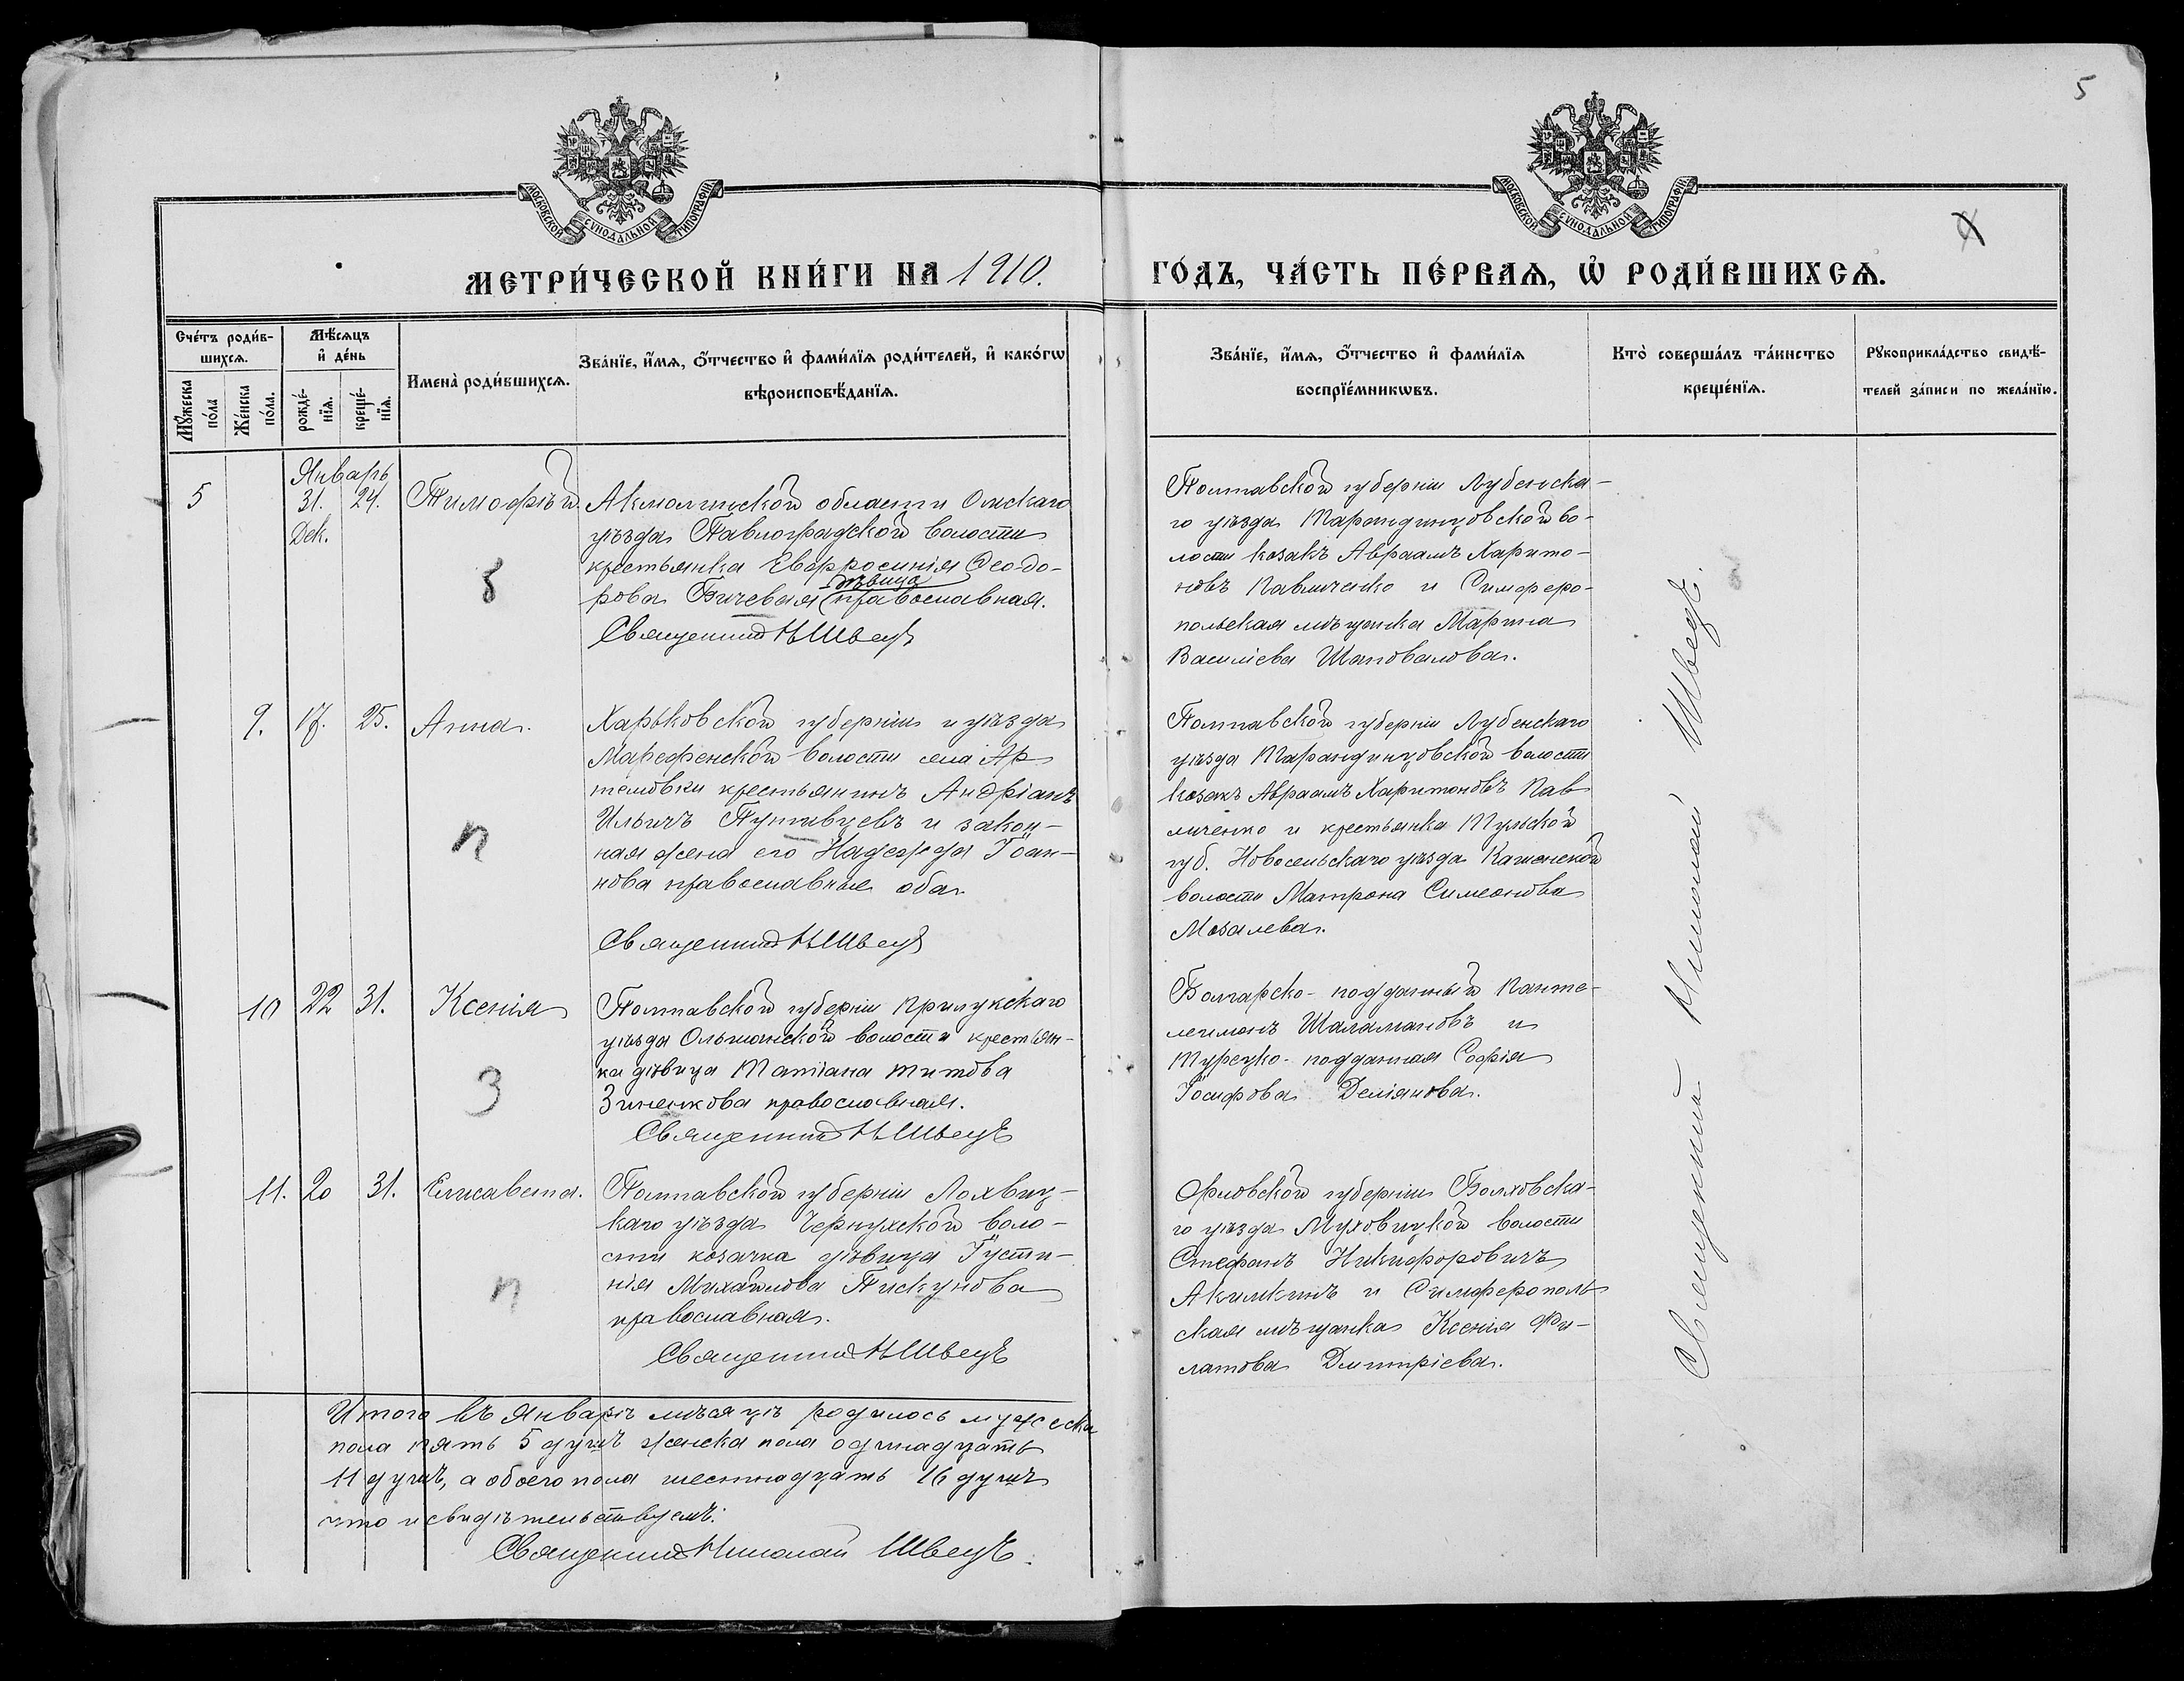 5
МОСКОВСКОЙ СѴНОДАЛЬНОЙ ТИПОГРАФІИ
МОСКОВСКОЙ СѴНОДАЛЬНОЙ ТИПОГРАФІИ
МЕТРИ́ЧЕСКОЙ КНИ́ГИ НА 1910. ГО́ДЪ, ЧА́СТЬ ПЕ́РВАѦ, Ѡ҆ РОДИ́ВШИХСѦ.
Сче́тъ роди́в-
шихсѧ.
Мꙋ́жеска по́ла
Же́нска по́ла.
Мѣ́сѧцъ
и҆ де́нь
рожде́-
нїѧ.
креще́-
нїѧ.
Имена̀ роди́вшихсѧ.
Зва́нїе, и҆́мѧ, ѻ҆́тчество и҆ фами́лїѧ роди́телей, и҆ како́гѡ
вѣроисповѣ́данїѧ.
Зва́нїе, и҆́мѧ, ѻ҆́тчество и҆ фами́лїѧ
воспрїе́мникѡвъ.
Кто̀ соверша́лъ та́инство
креще́нїѧ.
Рꙋкоприкла́дство свидѣ́-
телей за́писи по жела́нїю.
Январь
5 31. 24. Тимофѣй.
Дек.
Акмолинской области Омскаго
уѣзда Павлоградской волости
крестьянка Евфросинія Ѳеодо-
дѣвица
рова Бичевая православная.
Священник Н Швецъ
б
Полтавской губерніи Лубенска-
го уѣзда Тарандинцовской во-
лости козакъ Авраамъ Харито-
новъ Павличенко и Симферо-
польская мѣщанка Марина
Василіева Шаповалова.
9. 17. 25. Анна.
Харьковской губерніи и уѣзда
Мерефенской волости села Ар-
темовки крестьянинъ Андріанъ
Ильичъ Путивцевъ и закон-
ная жена его Надежда Іоан-
нова православные оба.
Священник Н Швецъ
п
Полтавской губерніи Лубенскаго
уѣзда Тарандинцовской волости
козакъ Авраамъ Харитоновъ Пав
личенко и крестьянка Тульской
губ. Новосельскаго уѣзда Каменской
волости Матрона Симеонова
Мозалева.
10 22 31. Ксенія
Полтавской губерніи Прилукскаго
уѣзда Ольшанской волости крестьян-
ка дѣвица Татіана Титова
Зиненкова православная.
Священник Н Швецъ
З
Болгарско-подданный Панте-
леимонъ Шаламановъ и
Турецко-подданная Софія
Іосифова Деліанова.
11. 20 31. Елисавета.
Полтавской губерніи Лохвиц-
каго уѣзда Чернухской воло-
сти козачка дѣвица Іусти-
нія Михайлова Пискунова
православная.
Священник Н Швецъ
п
Орловской губерніи Болховска-
го уѣзда Муховицкой волости
Стефанъ Никифоровичъ
Акимкинъ и Симферополь
ская мѣщанка Ксенія Фи-
латова Димитріева.
Священник Николай Швецъ.
Итого въ Январѣ мѣсяцѣ родилось мужеска
пола пять 5 душъ женска пола одинадцать
11 душъ, а обоего пола шестнадцать 16 душъ
что и свидѣтельствуемъ:
Священник Николай Швецъ.